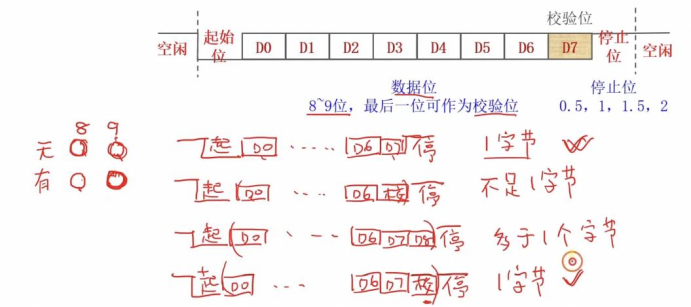 校验位
空闲 起始位 D0 D1 D2 D3 D4 D5 D6 D7 停止位 空闲
数据位 停止位
8~9位，最后一位可作为校验位 0.5，1，1.5，2
8 9
无 起 D0 ..... D6 D7 停 1字节
有 起 D0 .... D6 校 停 不足1字节
起 D0 . --- D6 D7 D8 停 多于1个字节
起 D0 ... D6 D7 校 停 1字节